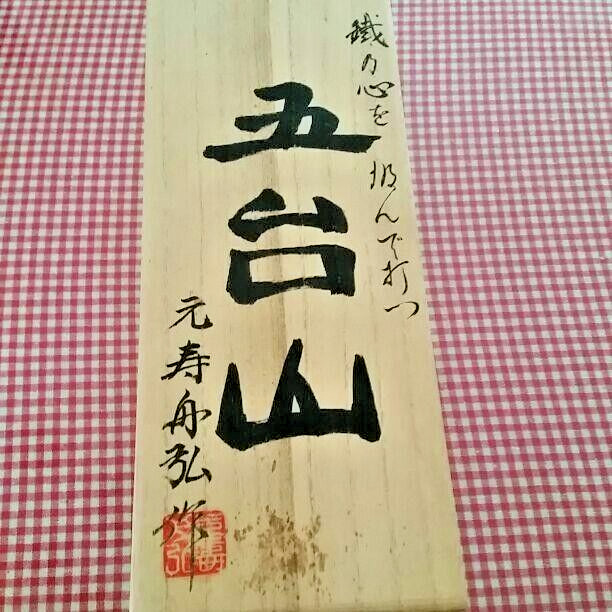 鐵の心を 汲んで打つ
五台山
元寿舟弘作